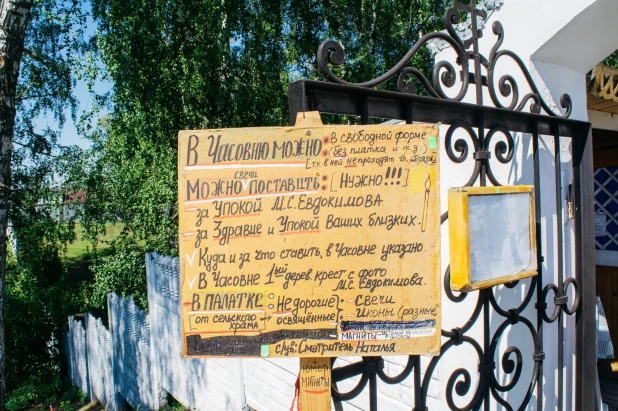 В ЧАСОВНЮ МОЖНО: В СВОБОДНОЙ ФОРМЕ
БЕЗ ПЛАТКА и т.д.
[Т.К. В НЕЙ НЕ ПРОХОДЯТ
СВЕЧИ
МОЖНО ПОСТАВИТЬ: [НУЖНО!!!]
- за УПОКОЙ М.С. ЕВДОКИМОВА
- за Здравие и Упокой Ваших близких.
√ Куда и за что ставить, в Часовне указано.
√ В Часовне 1ый дерев. крест с фото
М.С. Евдокимова.
√ В ПАЛАТКЕ: Недорогие: - СВЕЧИ
[от сельского храма] - освящённые: - иконы (разные
МАГНИТЫ
с/ув: Смотритель Наталья
МАГНИТЫ